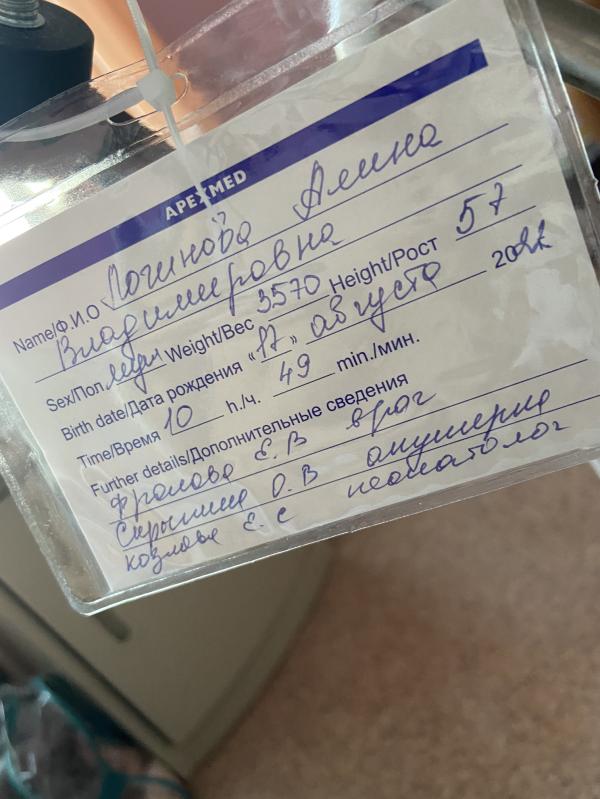 APEXMED
Name/Ф.И.О Логинова Алина
Владимировна
Sex/Пол Weight/Вес 3570 Height/Рост 57
Birth date/Дата рождения "17" августа 2022
Time/Время 10 h./ч. 49 min./мин.
Further details/Дополнительные сведения
Фролова Е.В врач
О.В акушерка
Козлова Е.С неонатолог